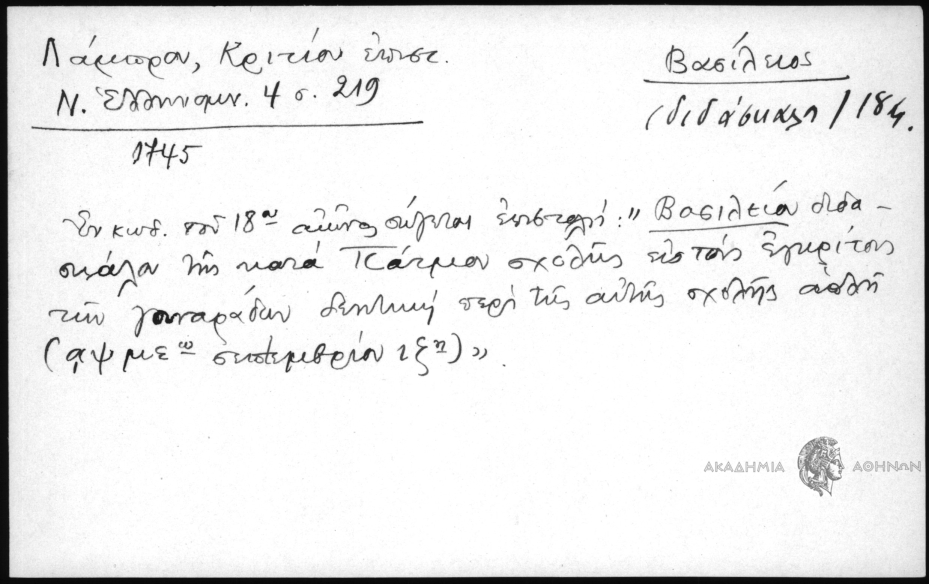 Λάμπρου, Κριτίου ἐπιστ.
Ν. Ἑλληνομν. 4 σ. 219
1745
Βασίλειος
(διδάσκαλος) 18ος.
Ἐν κωδ. τοῦ 18ου αἰῶνος σώζεται ἐπιστολή: "Βασιλείου διδα-
σκάλου τῆς κατά Πάτμον σχολῆς εἰς τούς ἐγκρίτους
τῶν γουναράδων περί τῆς αὐτῆς σχολῆς
(αψμεω σεπτεμβρίου ιξη)».
ΑΚΑΔΗΜΙΑ ΑΘΗΝΩΝ